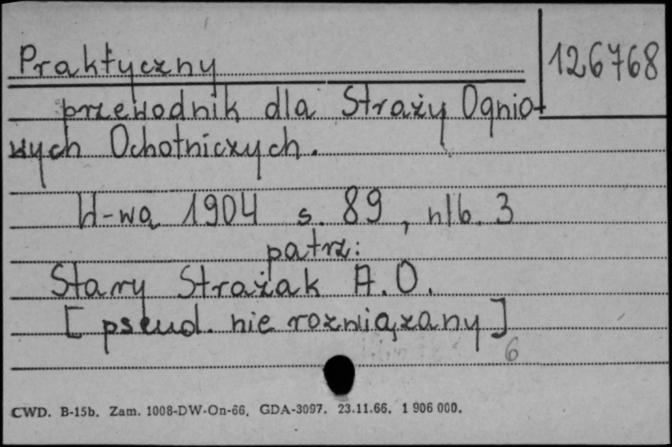 Praktyczny
126768
przewodnik dla Straży Ognio-
wych Ochotniczych.
W-wa 1904 s. 89, nlb. 3
patrz:
Stary Strażak A.O.
[pseud. nie rozwiązany]
6
CWD. B-15b. Zam. 1008-DW-On-66. GDA-3097. 23.11.66. 1 906 000.